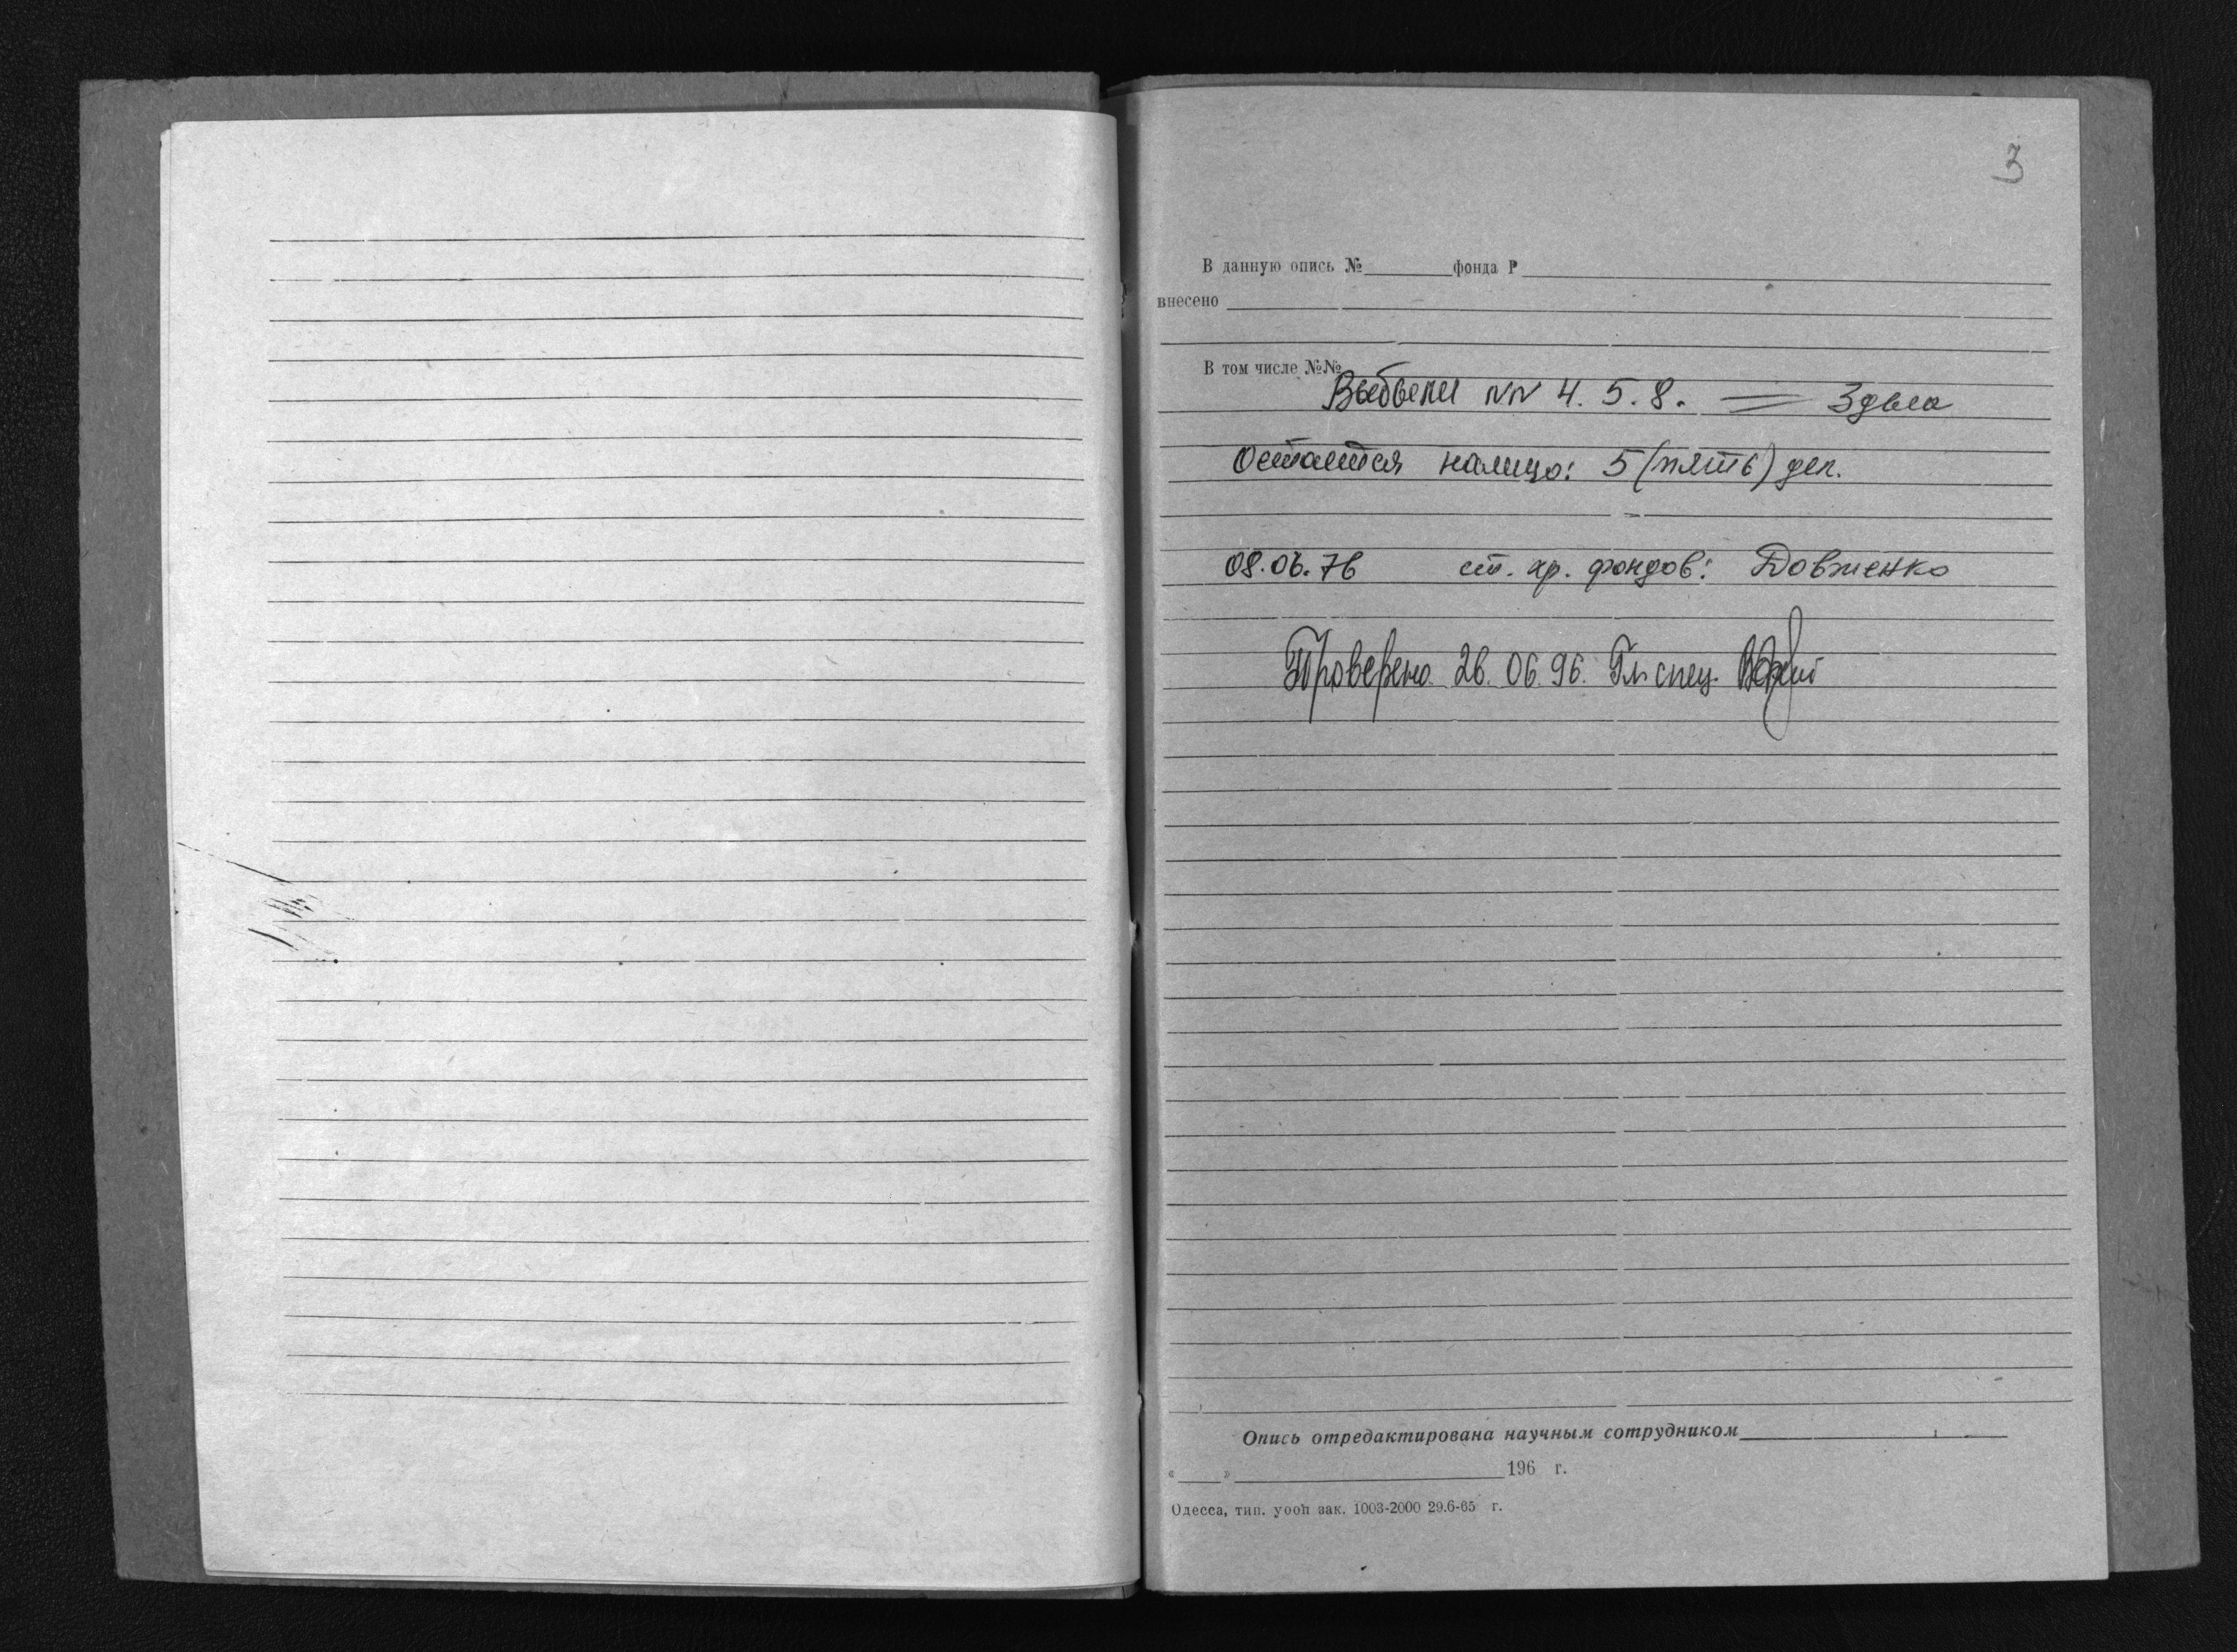 3
В данную опись № фонда Р
внесено
В том числе №№
Выбыли NN 4. 5. 8. = 3 дела
Остается налицо: 5 (пять) дел.
08.06.76 ст. хр. фондов: Довженко
Проверено 26.06.96. Гл. спец.
Опись отредактирована научным сотрудником
« » 196 г.
Одесса, тип. уооп зак. 1003-2000 29.6-65 г.